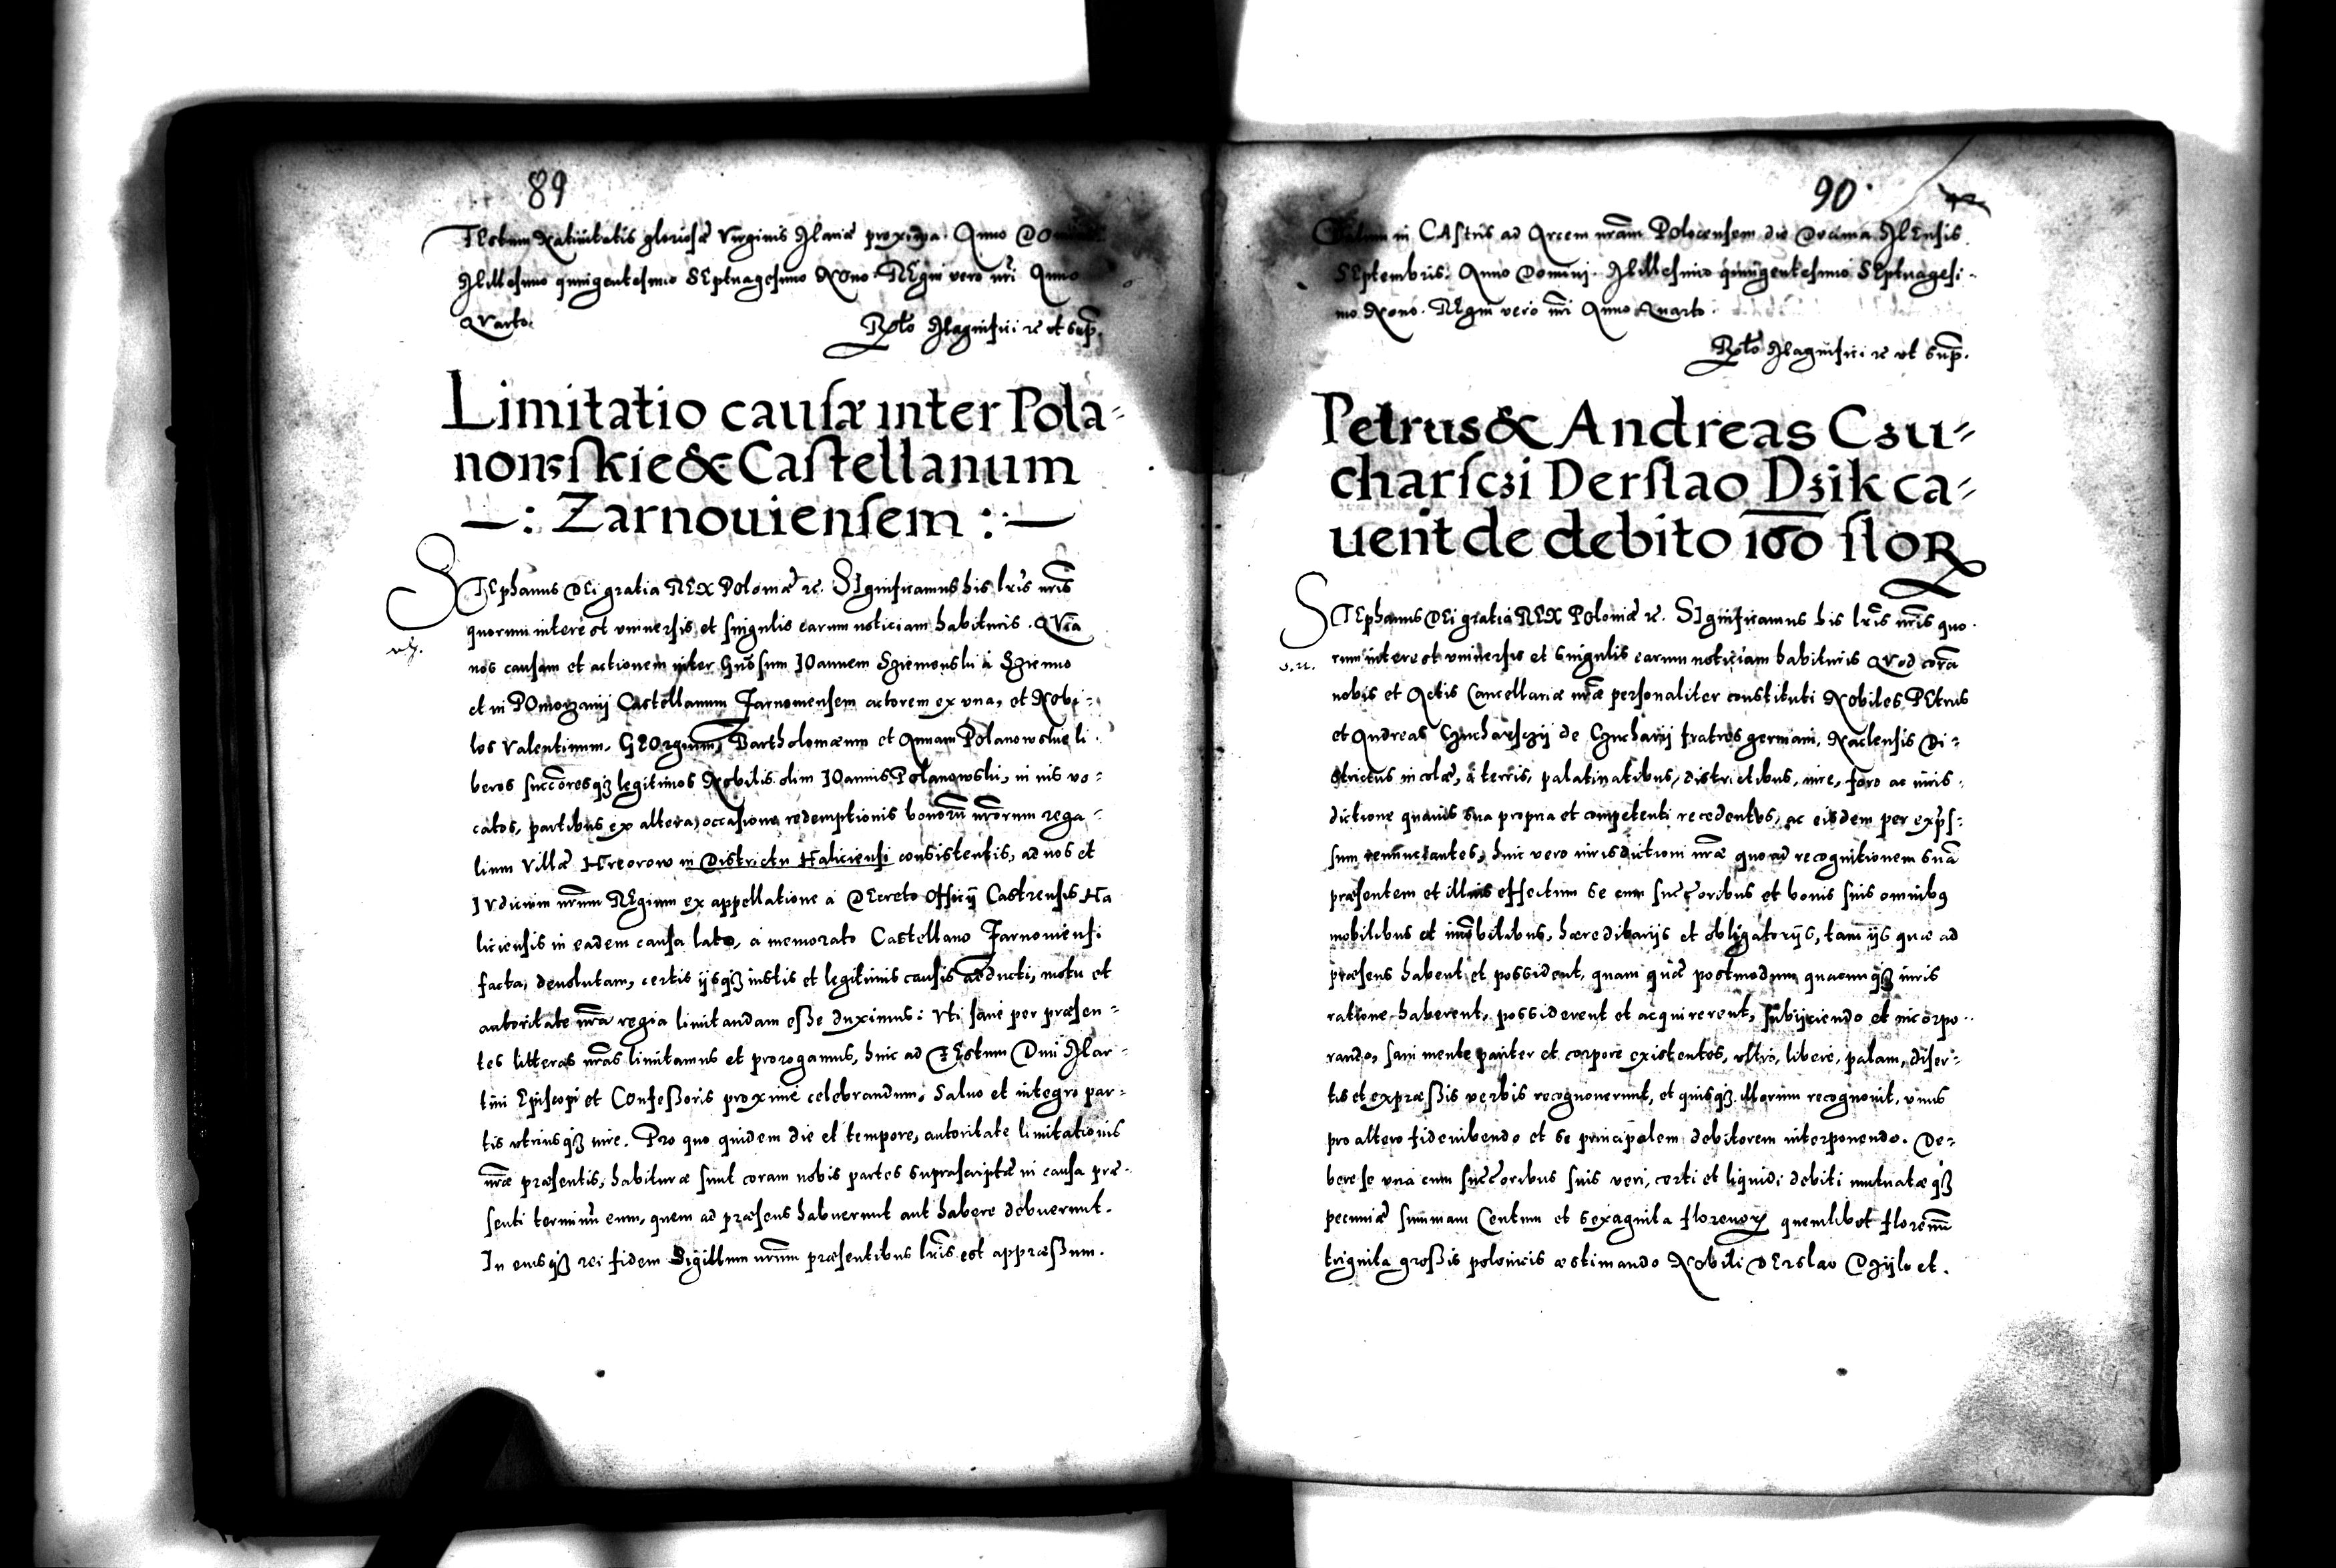 89
Festum Natiuitatis gloriosæ Virginis Mariæ proxima. Anno Domini
Millesimo quingentesimo SEptuagesimo NOno. REgni vero nri Anno
QVarto.
Rlo Magnifici rc vt supr.
Limitatio causæ inter Pola-
nowskie & Castellanum
—: Zarnouiensem :—
STEphanus DEi gratia REX POloniæ rc. SIgnificamus his lris nris
quorum interest vniuersis et singulis earum noticiam habituris. QVia
nos causam et actionem inter Gnosum IOannem Sziemowski à Szienno
et in POmorzanij Castellanum Zarnouiensem actorem ex vna, et Nobi-
les Valentinum, GEOrgium, Bartholomæum et Annam Polanowskie li-
beros succoresqз legitimos Nobilis olim IOannis Polanowski, in ius vo-
catos, partibus ex altera, occasione redemptionis bonorũ nrorum rega-
lium Villæ Hreorow in Districtu Haliciensi consistentis, ad nos et
IVdicium nrum REgium ex appellatione à DEcreto Officij Castrensis Ha
liciensis in eadem causa lato, à memorato Castellano Zarnouiensi
facta, deuolutam, certis ijsqз iustis et legitimis causis adducti, motu et
autoritate nra regia limitandam esse duximus: Vti sane per præsen-
tes litteras nras limitamus et prorogamus, hinc ad FEstum Diui Mar-
tini Episcopi et COnfessoris proxime celebrandum, Saluo et integro par-
tis vtriusqз iure. Pro quo quidem die et tempore, autoritate limitationis
nræ præsentis, habituræ sunt coram nobis partes suprascriptæ in causa præ-
senti terminũ eum, quem ad præsens habuerunt aut habere debuerunt.
In cuiusqз rei fidem Sigillum nrum præsentibus lris est appræssum.
90
Datum in CAstris ad Arcem nram POlocensem die Decima MEnsis
SEptembris. Anno Dominj. Millesimo quingentesimo SEptuagesi-
mo Nono. REgni vero nri Anno Quarto.
Rlo Magnifici rc vt supr.
Petrus & Andreas Czu-
charsczi Derslao Dzik ca-
uent de debito 160 floR
STEphanus DEi gratia REX POloniæ rc. SIgnificamus his lris nris quo-
rum interest vniuersis et singulis earum noticiam habituris QVod corã
nobis et Actis Cancellariæ nræ personaliter constituti Nobiles PEtrus
et Andreas Czucharsczij de Czucharij fratres germani, Naclensis Di-
strictus incolæ, à terris, palatinatibus, districtibus, iure, foro ac iuris-
dictione quauis sua propria et competenti recedentes, ac eisdem per expres-
sum renunciantes, huic vero iurisdictioni nræ quoad recognitionem suã
præsentem et illius effectum se cum succoribus et bonis suis omnibus
mobilibus et immobilibus, hæreditarijs et obligatorijs, tam ijs quæ ad
præsens habent et possident, quam quæ postmodum quacunqз iuris
ratione haberent, possiderent et acquirerent, subijciendo et incorpo-
rando, sani mente pariter et corpore existentes, vltro, libere, palam, diser-
tis et expræssis verbis recognouerunt, et quisqз illorum recognouit, vnus
pro altero fideiubendo et se principalem debitorem interponendo. De-
bere se vna cum succoribus suis veri, certi et liquidi debiti mutuatæqз
pecuniæ summam Centum et sexaginta florenorum quemlibet florenum
triginta grossis polonicis æstimando Nobili DErslao Dzijk et.